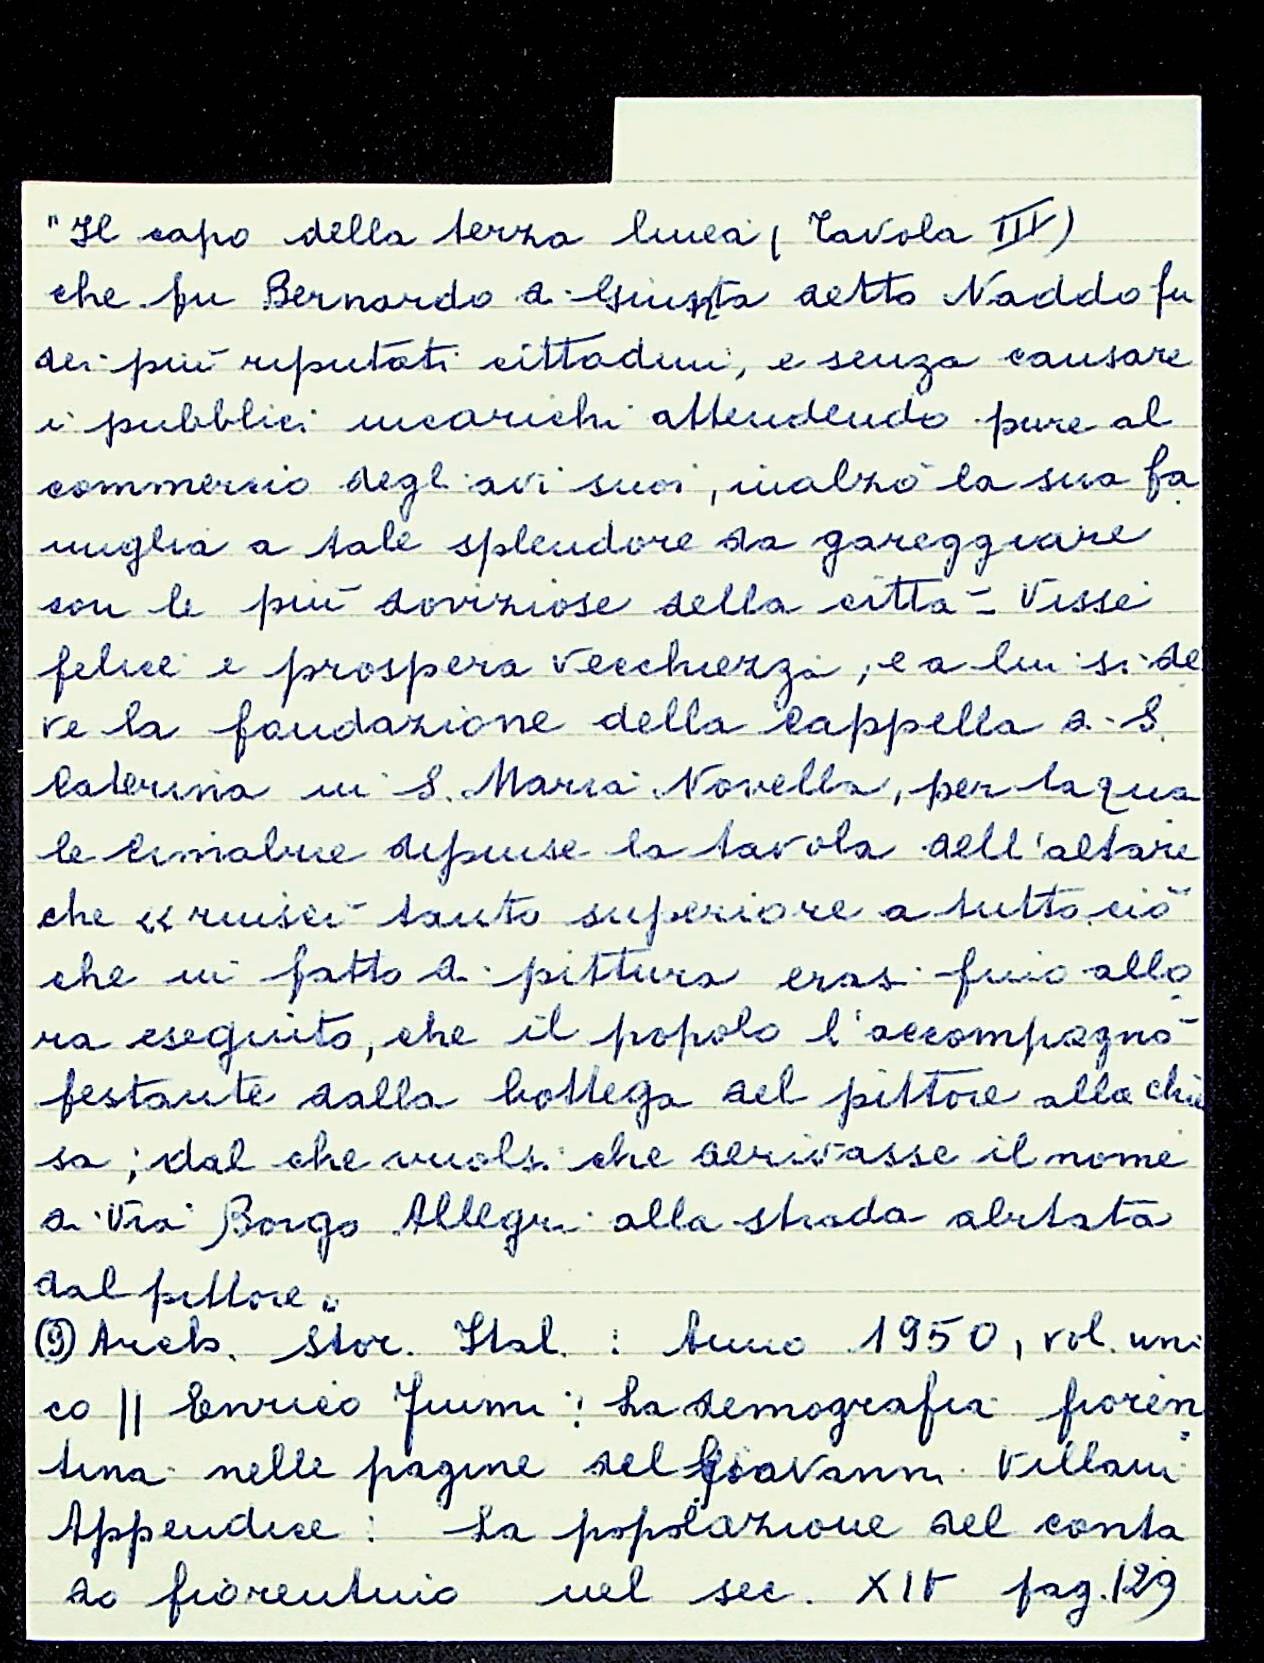 "Il capo della terza linea ( Tavola III)
che fu Bernardo di Giunta detto Naddo fu
dei più riputati cittadini, e senza causare
i pubblici incarichi attendendo pure al
commercio degli avi suoi, inalzò la sua fa
miglia a tale splendore da gareggiare
con le più doviziose della città - Visse
felice e prospera vecchiezza, e a lui si de
ve la fondazione della Cappella di S.
Caterina in S. Maria Novella, per la qua
le Cimabue dipinse la tavola dell'altare
che « riuscì tanto superiore a tutto ciò
che in fatto di pittura erasi fino allo
ra eseguito, che il popolo l'accompagnò
festante dalla bottega del pittore alla chie
sa; dal che vuolsi che derivasse il nome
di Via Borgo Allegri alla strada abitata
dal pittore"
(9) Arch. Stor. Ital. : Anno 1950, vol. uni
co || Enrico Fiumi : La demografia fioren
tina nelle pagine del Giovanni Villani
Appendice : La popolazione del conta
do fiorentino nel sec. XIV pag. 129